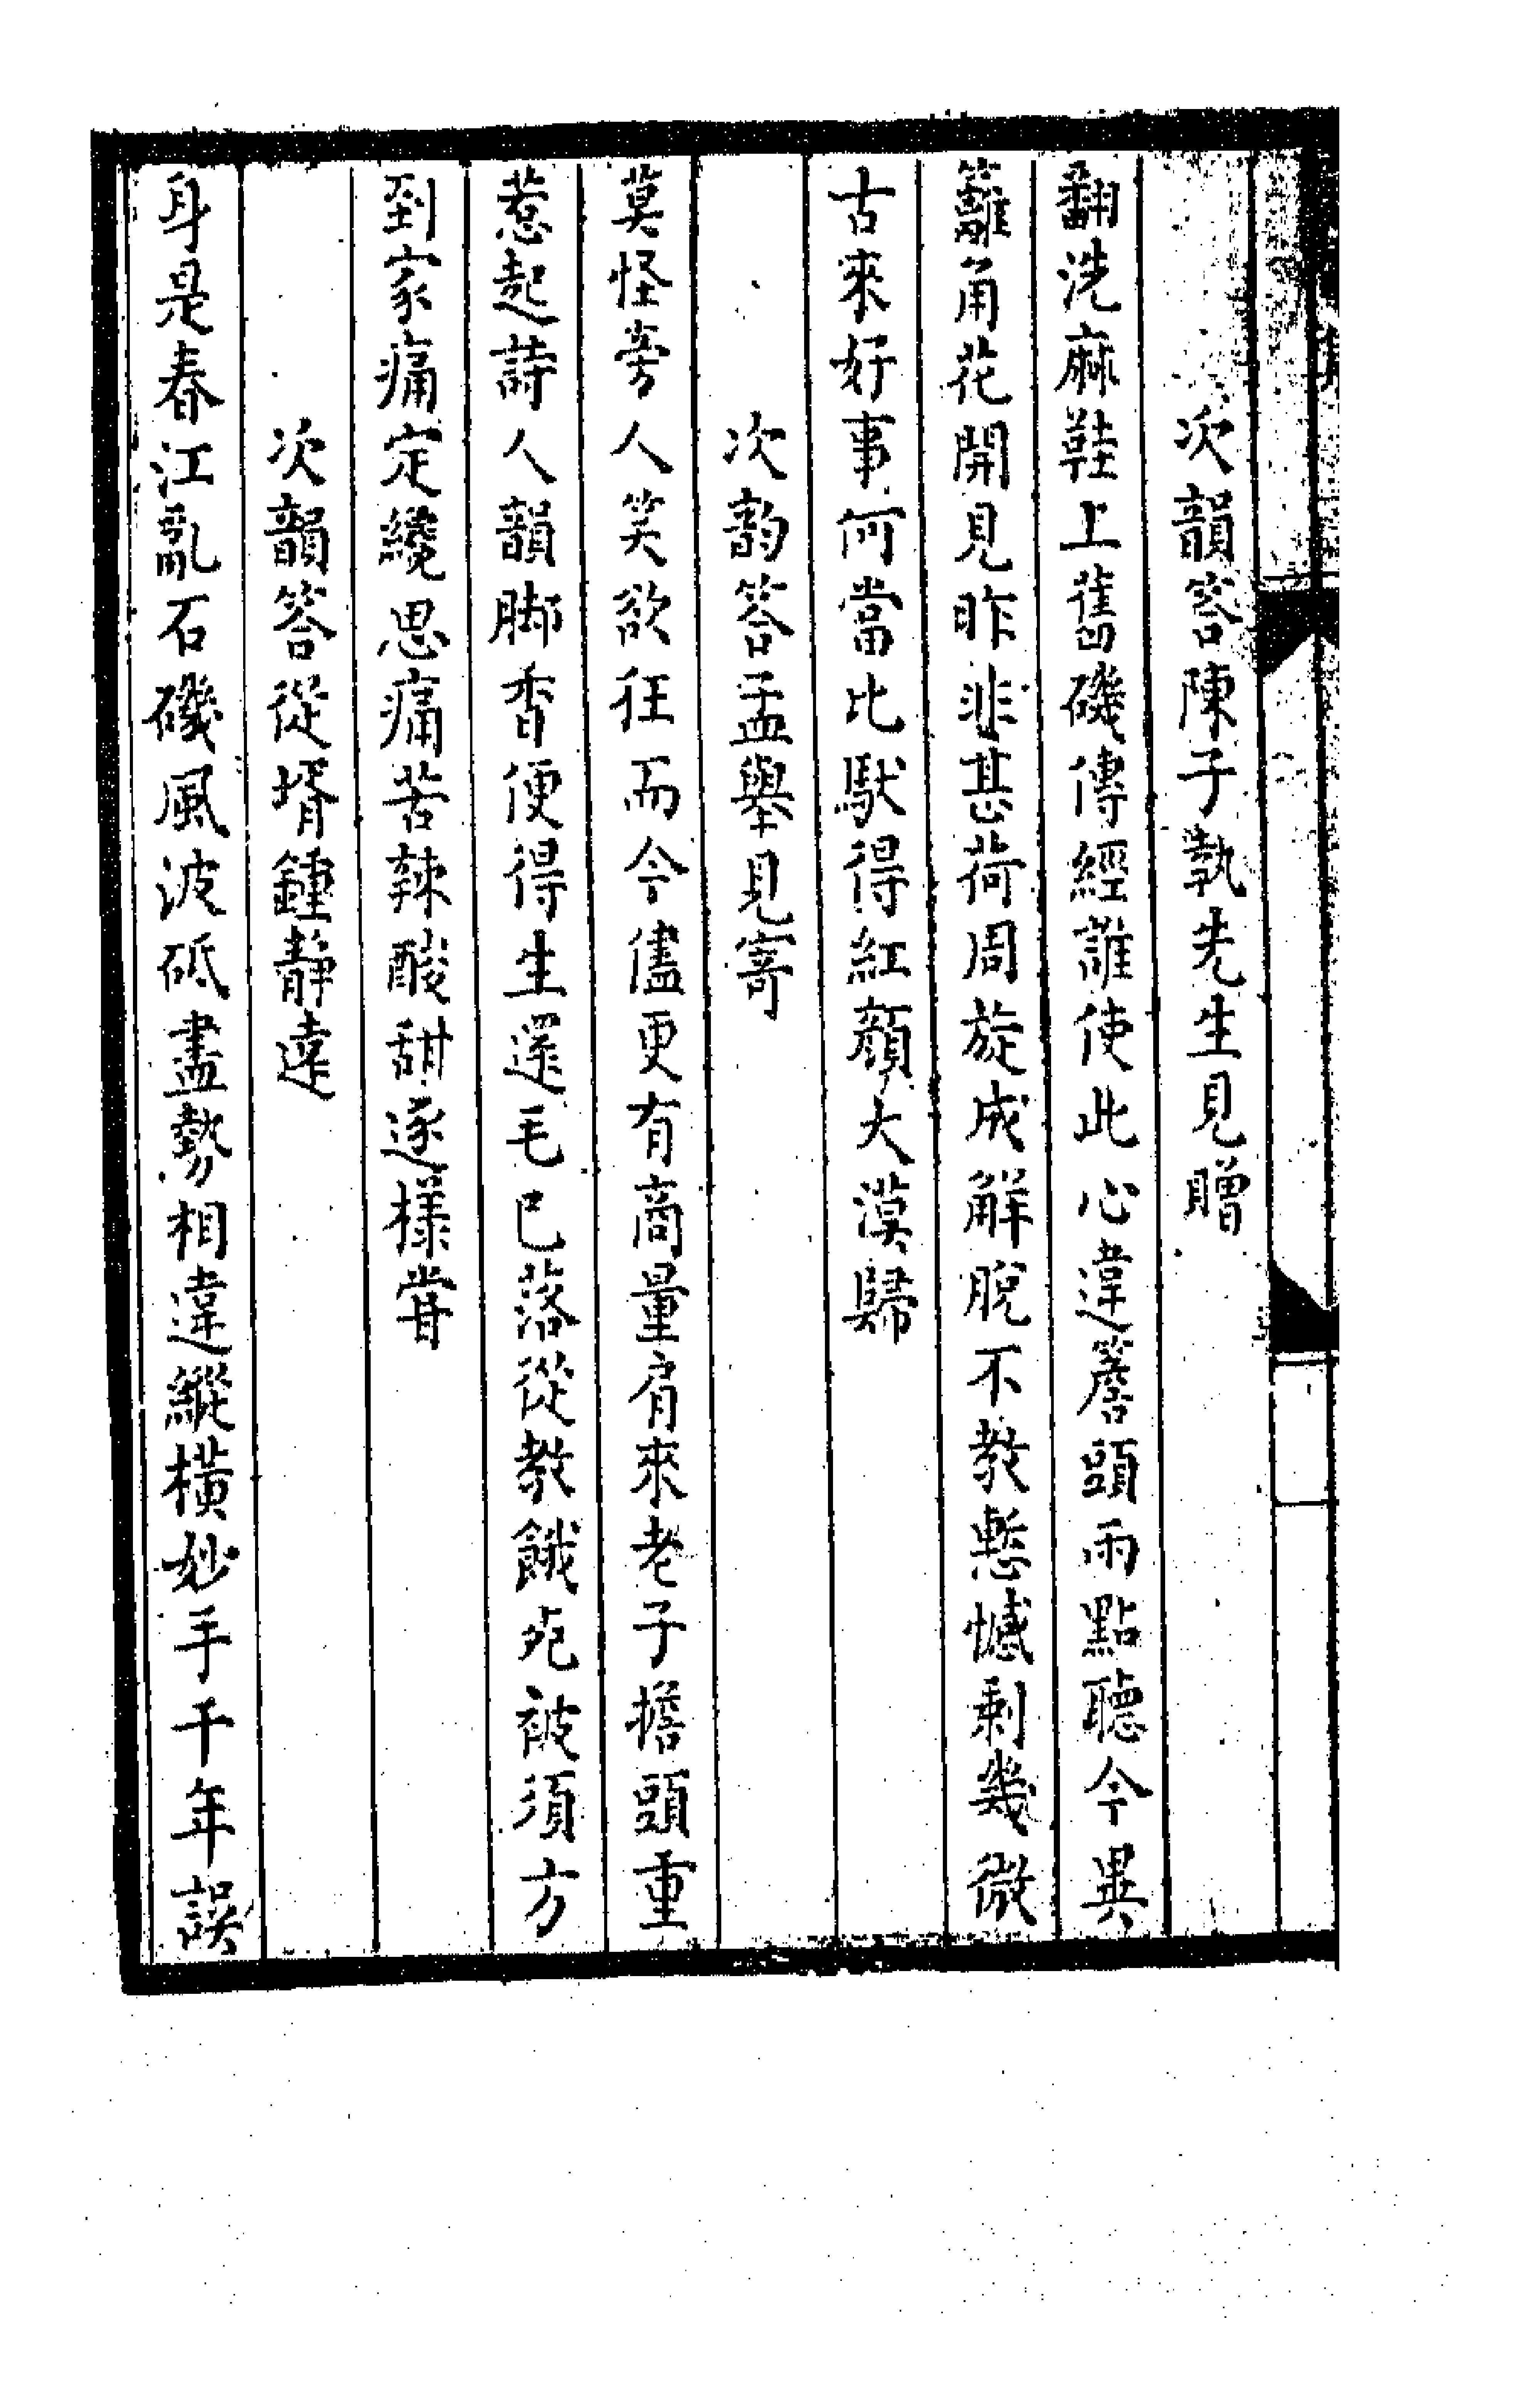 次韻答陳子執先生見贈
翻洗麻鞋上舊磯傳經誰使此心違簷頭雨點聽今異
籬角花開見昨非甚荷周旋成解脫不教慙憾剩幾微
古來好事何當比馱得紅顏大漠歸
次韵答孟舉見寄
莫怪旁人笑欲狂而今儘更有商量肩來老子擔頭重
惹起詩人韻脚香便得生還毛已落從教餓死被須方
到家痛定纔思痛苦辣酸甜逐樣嘗
次韻答從壻鍾靜遠
身是春江亂石磯風波砥盡勢相違縱橫妙手千年誤